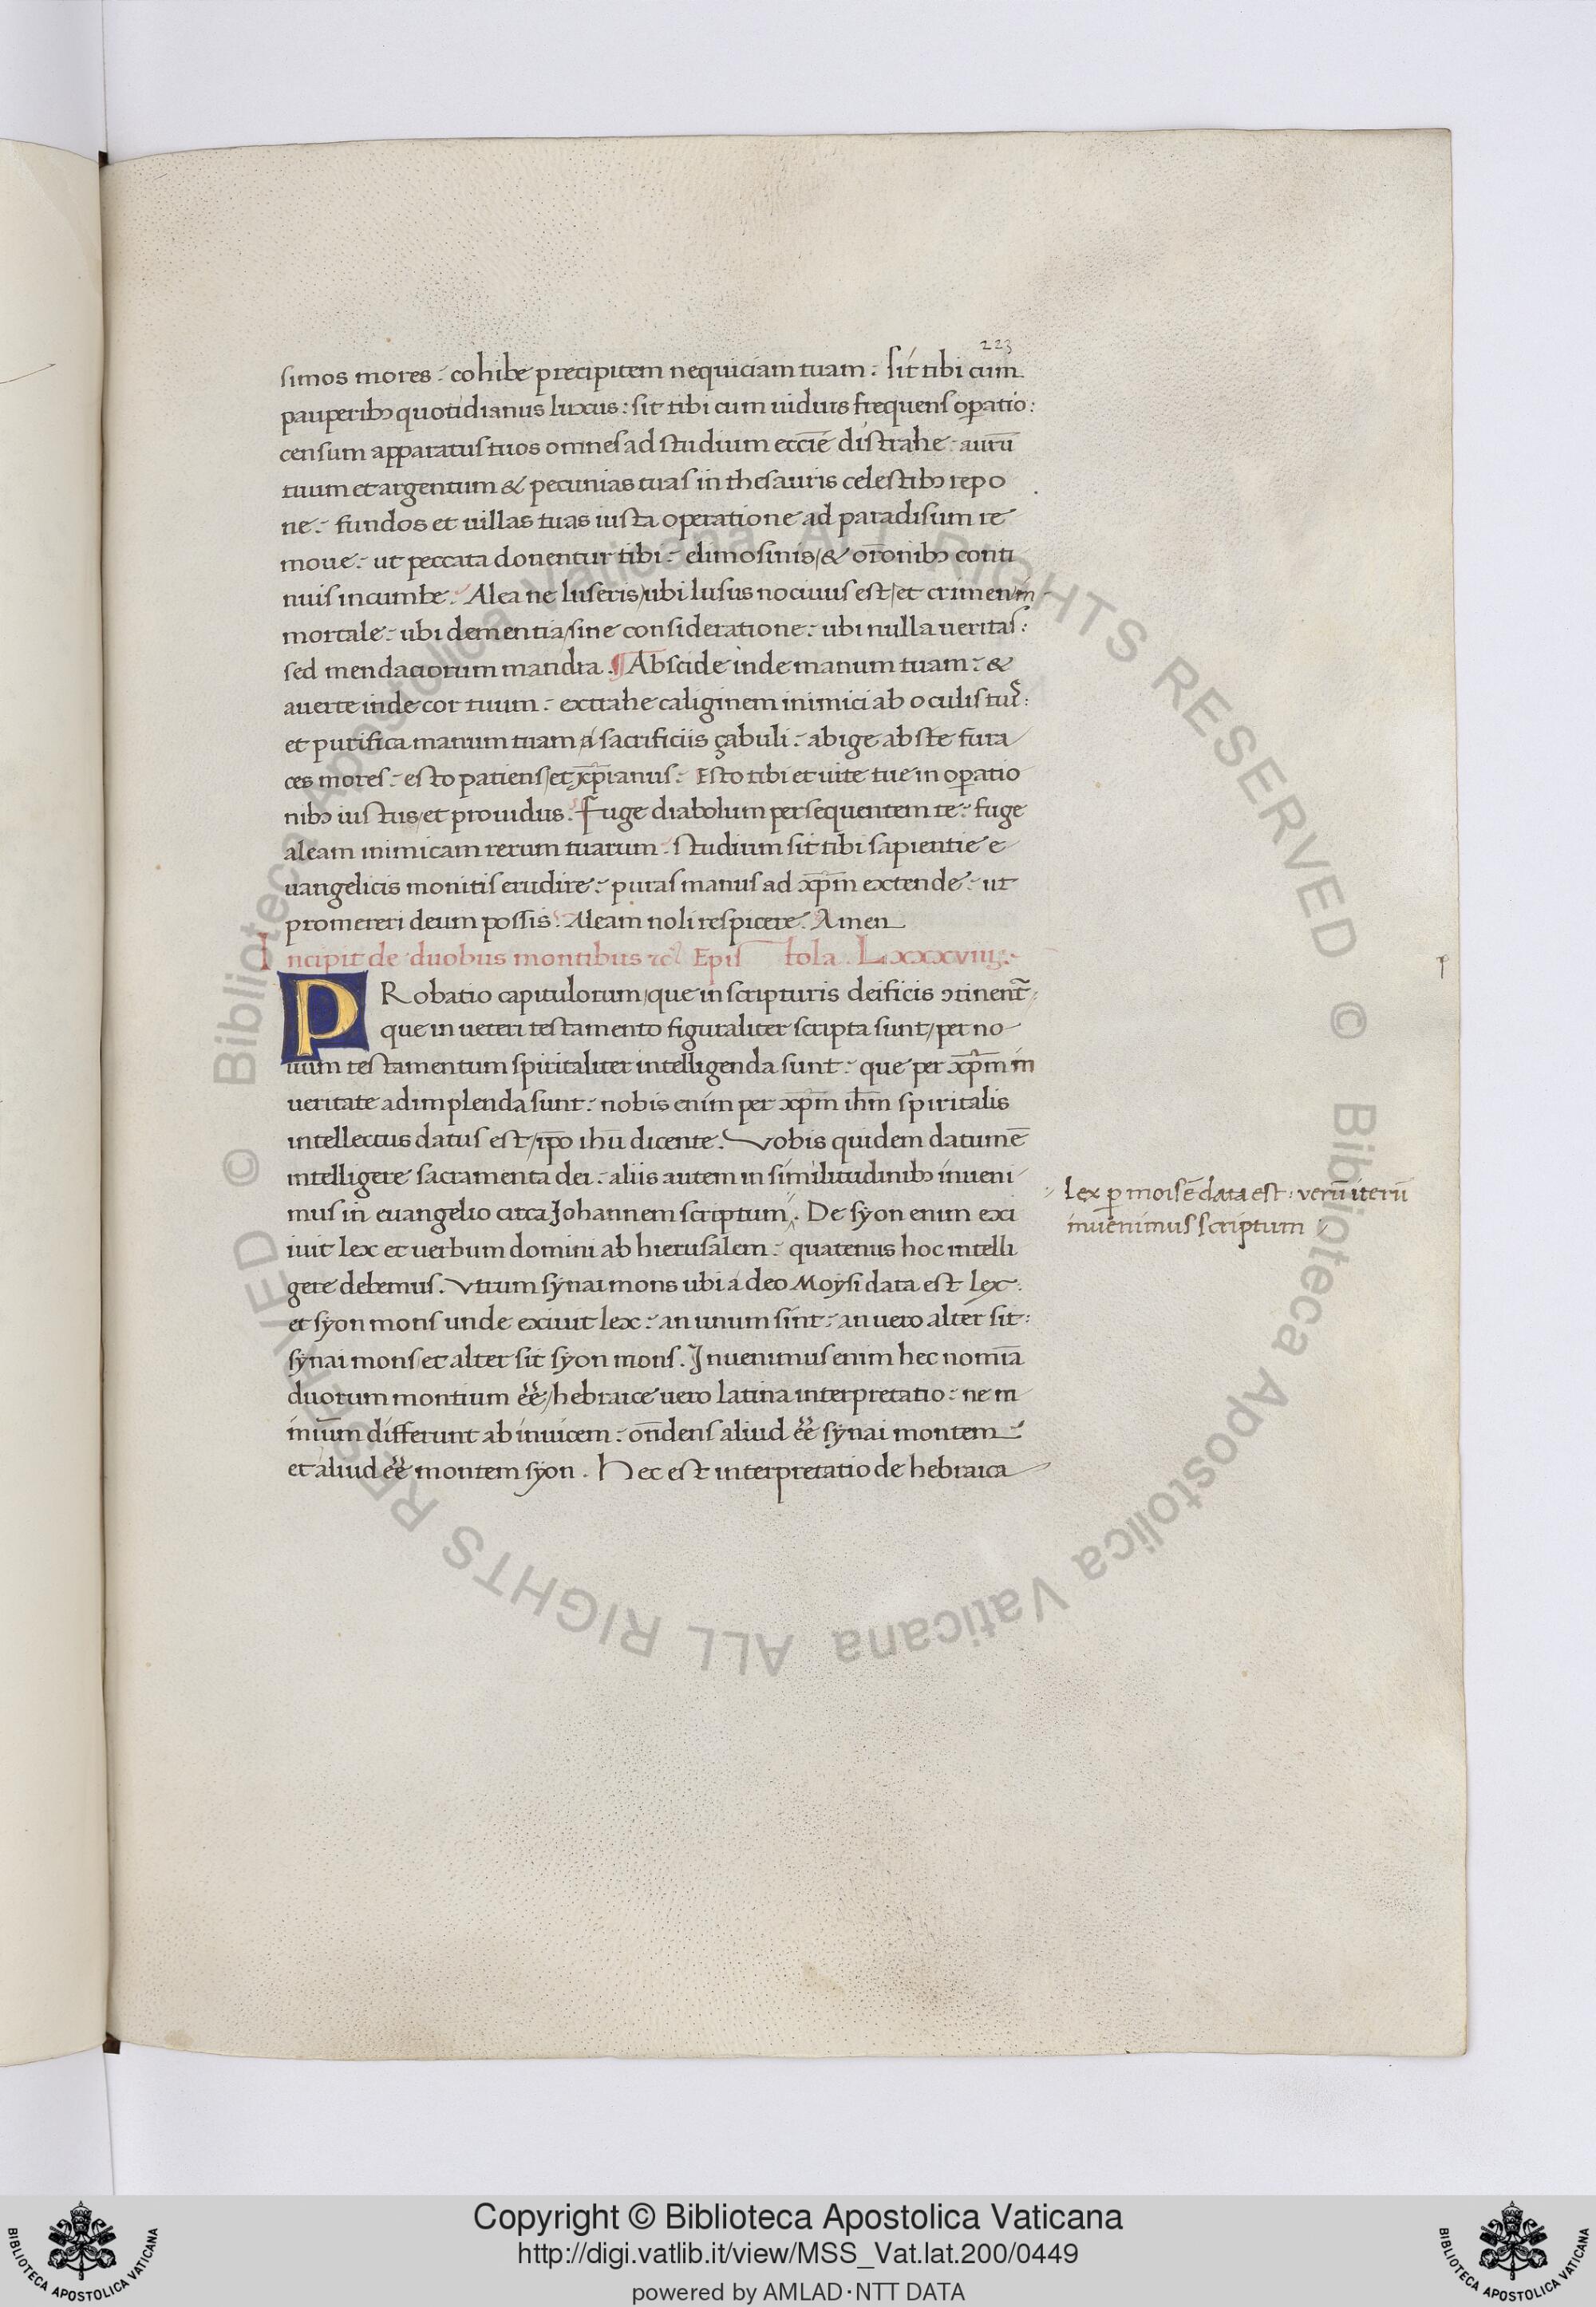 223
simos mores : cohibe precipitem nequiciam tuam : sit tibi cum
pauperibꝫ quotidianus luxus : sit tibi cum uiduis frequens oꝑatio :
censum apparatus tuos omnes ad studium eccīe distrahe : aurū
tuum et argentum & pecunias tuas in thesauris celestibꝫ repo
ne : fundos et uillas tuas iusta operatione ad paradisum re
moue : ut peccata donentur tibi : elimosinis / & or̄onibꝫ conti
nuis incumbe . Alea ne luseris / ubi lusus nociuus est / et crimen in
mortale : ubi dementia / sine consideratione : ubi nulla ueritas :
sed mendaciorum mandra . ¶ Abscide inde manum tuam : &
auerte inde cor tuum : extrahe caliginem inimici ab oculis tuis :
et purifica manum tuam / a sacrificiis çabuli : abige abs te fura
ces mores : esto patiens / et xp̄ianus : Esto tibi et uite tue in oꝑatio
nibꝫ iustus / et prouidus . Fuge diabolum persequentem te : fuge
aleam inimicam rerum tuarum . studium sit tibi sapientie e
uangelicis monitis erudire : puras manus ad xp̄m extende : ut
promereri deum possis . Aleam noli respicere . Amen
Incipit de duobus montibus ⁊c̄ Epistola . Lxxxviiij .
PRobatio capitulorum / que in scripturis deificis ↄtinent̄ :
que in ueteri testamento figuraliter scripta sunt / per no
uum testamentum spiritaliter intelligenda sunt : que per xp̄m in
ueritate adimplenda sunt : nobis enim per xp̄m ih̄m spiritalis
intellectus datus est / ip̄o ihū dicente . Vobis quidem datum ē
intelligere sacramenta dei : aliis autem in similitudinibꝫ inueni
mus in euangelio circa Johannem scriptum . De syon enim exi
iuit lex et uerbum domini ab hierusalem : quatenus hoc intelli
gere debemus . Vtrum synai mons ubi a deo Moysi data est lex :
et syon mons unde exiuit lex : an unum sint : an uero alter sit :
synai mons / et alter sit syon mons . Inuenimus enim hec nomīa
duorum montium ēē / hebraice uero latina interpretatio : ne in
imiūm differunt ab inuicem : on̄dens aliud ēē synai montem
et aliud ēē montem syon . Hec est interpretatio de hebraica
lex ꝑ moisē data est : verū iterū
inuenimus scriptum
Copyright © Biblioteca Apostolica Vaticana
http://digi.vatlib.it/view/MSS_Vat.lat.200/0449
powered by AMLAD·NTT DATA
BIBLIOTECA APOSTOLICA VATICANA
BIBLIOTECA APOSTOLICA VATICANA
© Biblioteca Apostolica Vaticana ALL RIGHTS RESERVED © Biblioteca Apostolica Vaticana ALL RIGHTS RESERVED